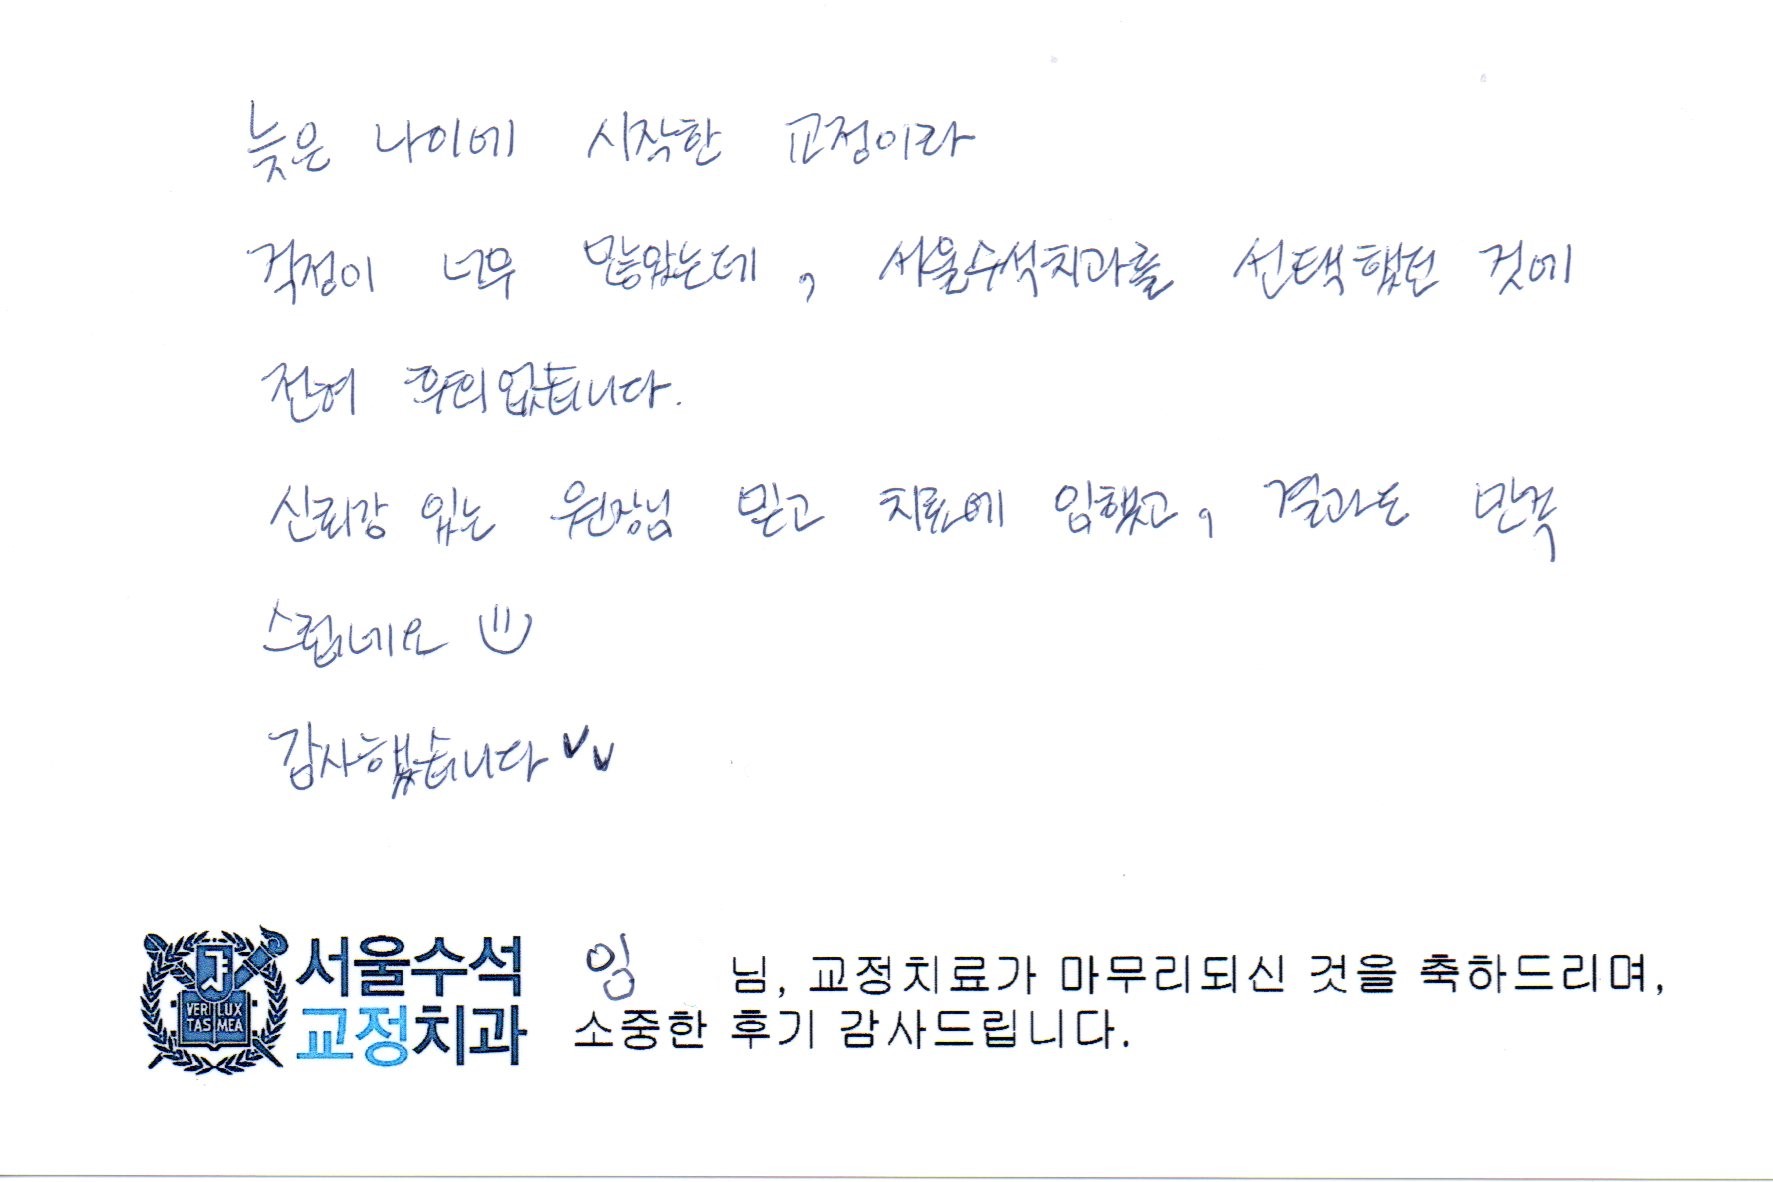 늦은 나이에 시작한 교정이라
걱정이 너무 많았는데, 서울수석치과를 선택했던 것에
전혀 후회없습니다.
신뢰감 있는 원장님 믿고 치료에 임했고, 결과도 만족
스럽네요
감사했습니다
서울수석
교정치과
VERI LUX
TAS MEA
임 님, 교정치료가 마무리되신 것을 축하드리며,
소중한 후기 감사드립니다.